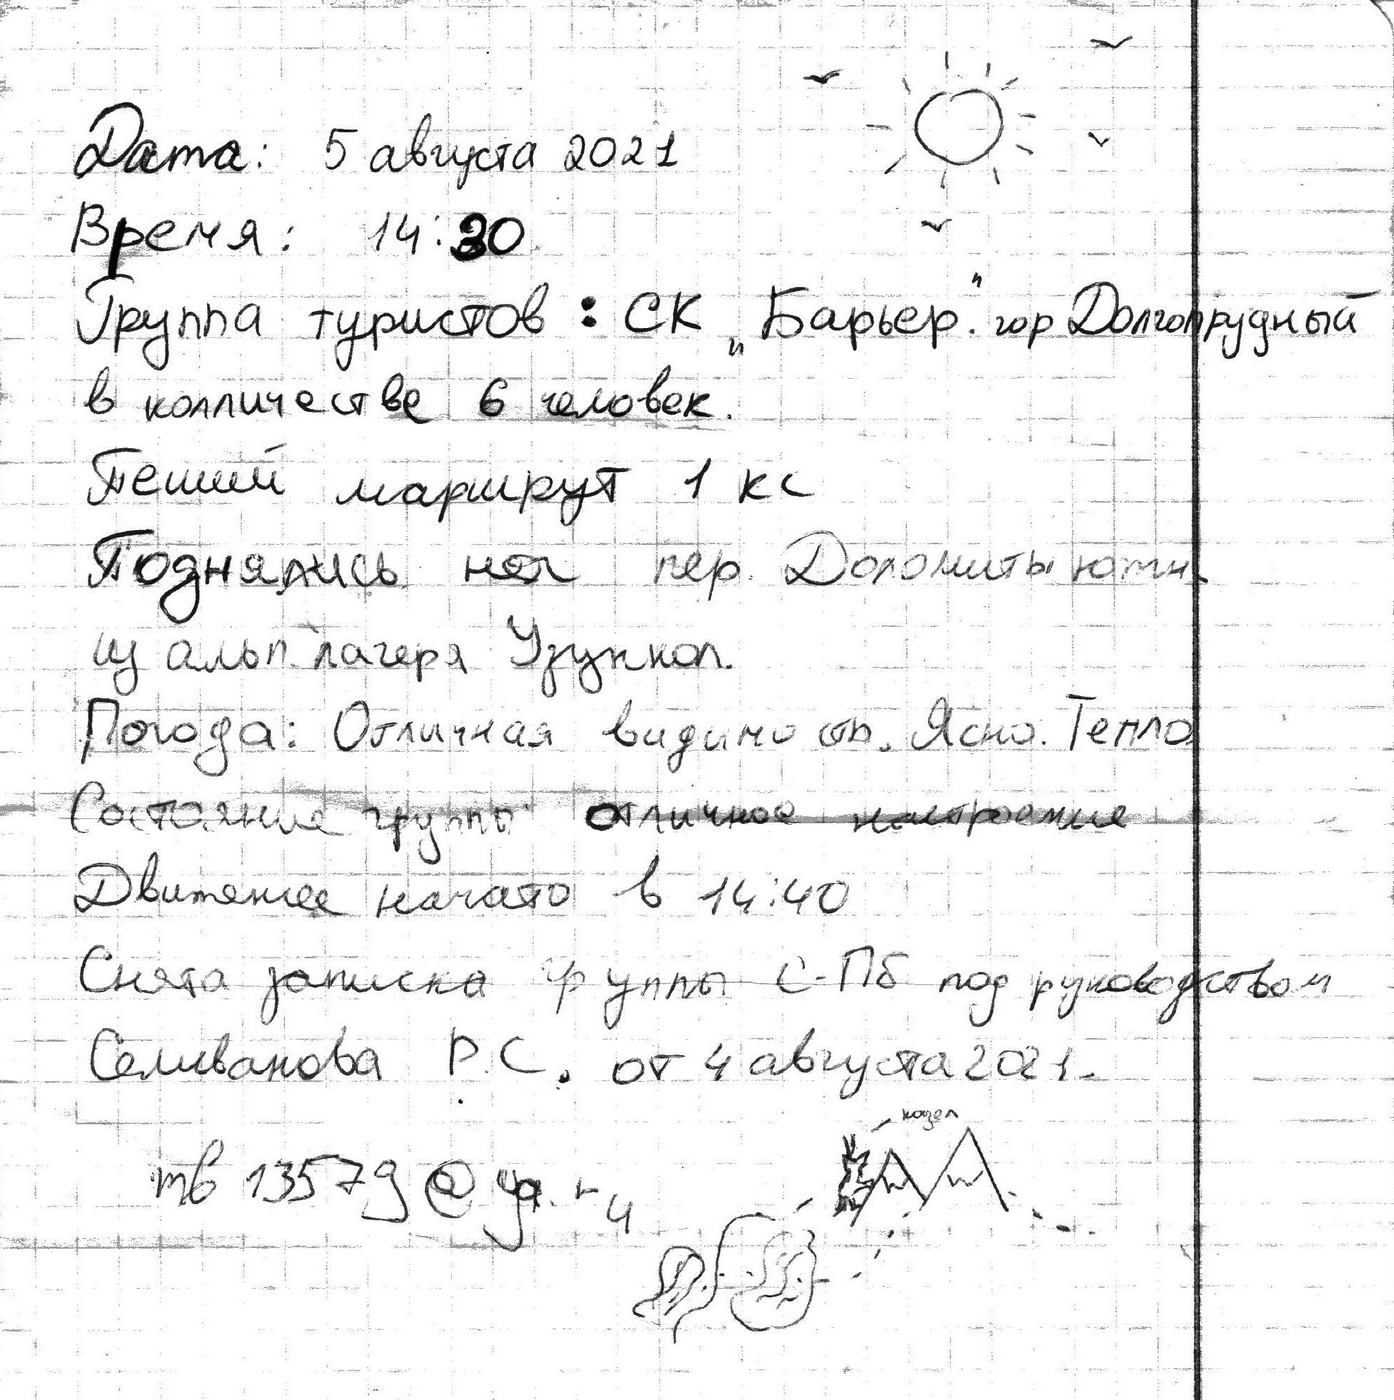 Дата: 5 августа 2021
Время: 14:30
Группа туристов: СК „Барьер." гор Долгопрудный
в колличестве 6 человек.
Пеший маршрут 1 кс
Поднялись на пер. Доломиты южн.
из альп. лагеря Узункол.
Погода: Отличная видимость. Ясно. Тепло
Состояние группы отличное настроение
Движение начато в 14:40
Снята записка группы С-Пб под руководством
Селиванова Р.С. от 4 августа 2021.
козел